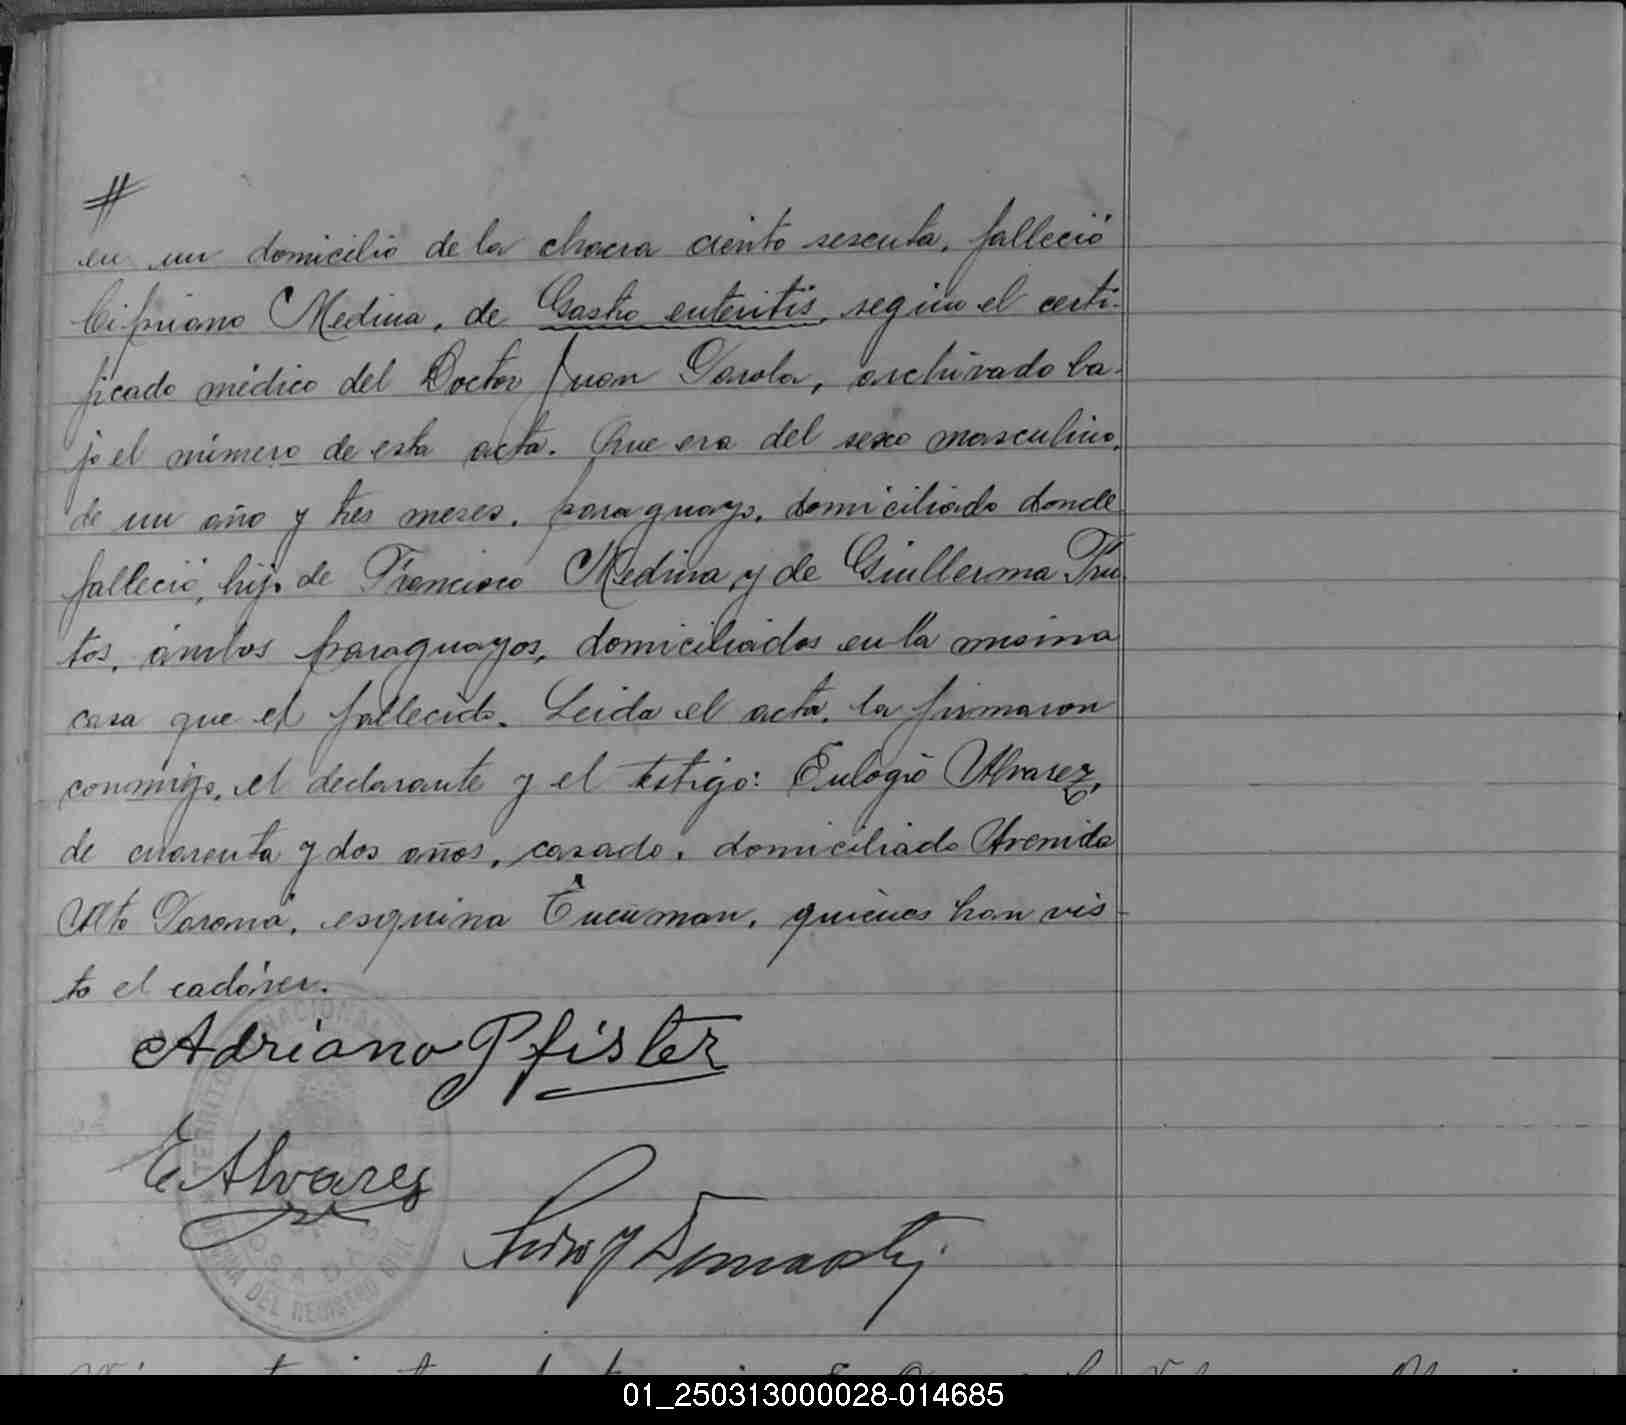 #
en un domicilio de la chacra ciento sesenta, falleció
Cipriano Medina, de Gastro enteritis, segun el certi-
ficado médico del Doctor Juan Parola, archivado ba-
jo el número de esta acta. Que era del sexo masculino,
de un año y tres meses, paraguayo, domiciliado donde
falleció, hijo de Francisco Medina y de Guillerma Fru-
tos, ambos paraguayos, domiciliados en la misma
casa que el fallecido. Leida el acta, la firmaron
conmigo, el declarante y el testigo: Eulogio Alvarez,
de cuarenta y dos años, casado, domiciliado Avenida
Alto Paraná, esquina Tucuman, quienes han vis-
to el cadáver.
Adriano Pfister
E Alvares
TERRITORIO NACIONAL
POSADAS
DEL REGISTRO CIVIL
01_250313000028-014685